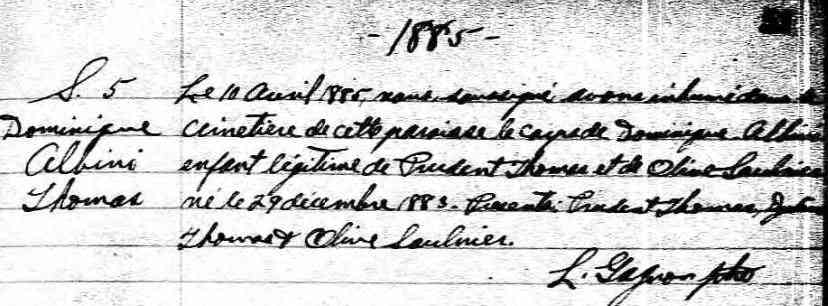 - 1885 -
S. 5
Dominique
Albini
Thomas
Le 10 Avril 1885, nous, soussigné avons inhumé dans le
cimetière de cette paroisse le corps de Dominique Albini
enfant légitime de Prudent Thomas et de Olive Saulnier
né le 29 décembre 1883. Presents: Prudent Thomas,
Thomas & Olive Saulnier.
L. Gagnon ptre